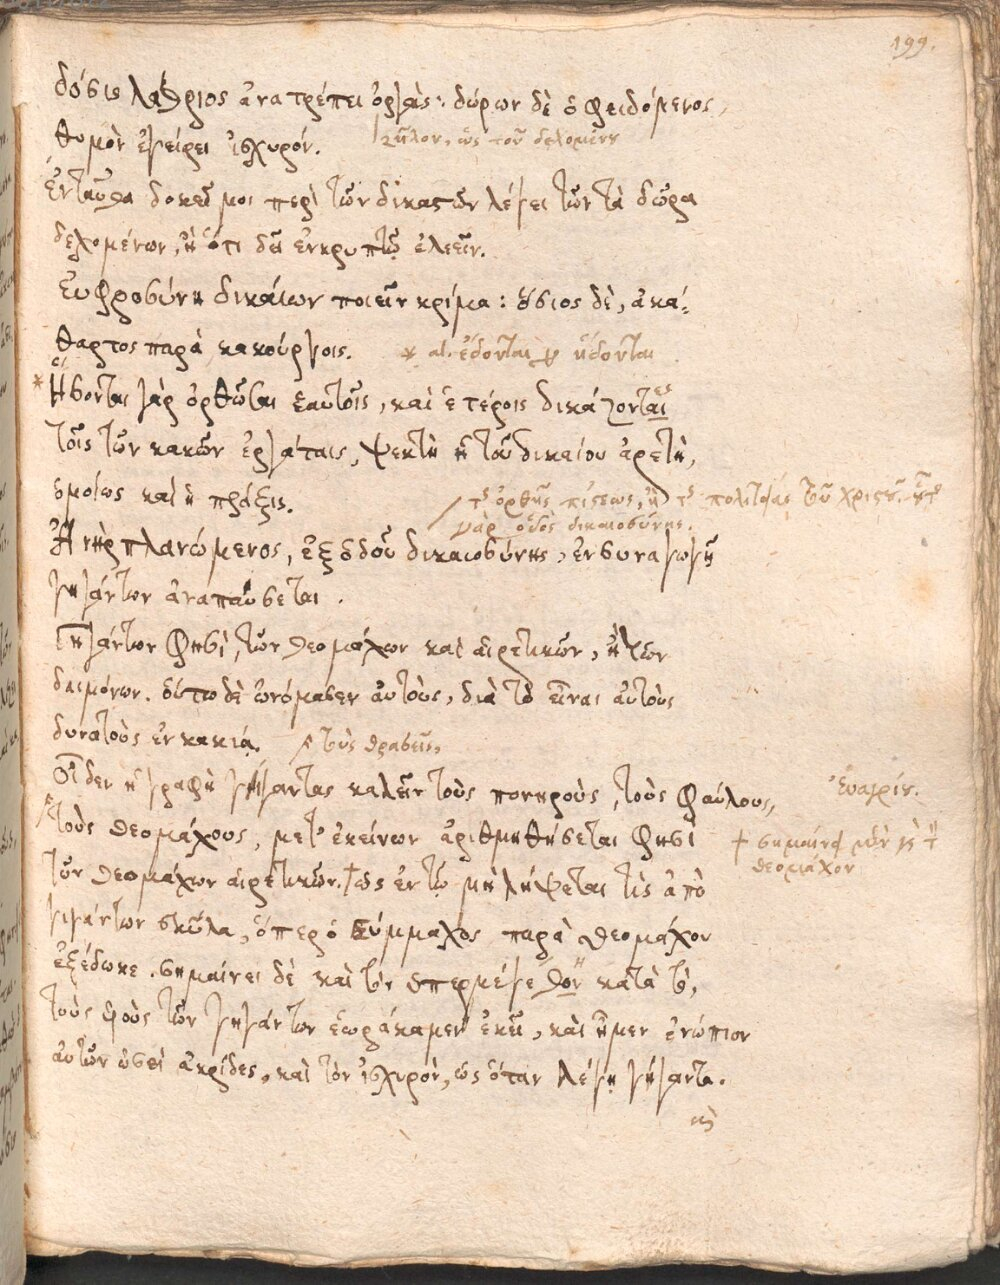 199.
δόσις λάθριος ἀνατρέπει ὀργάς: δώρων δὲ ὁ φειδόμενος,
θυμὸν ἐγείρει ἰσχυρόν.
δῆλον, ὡς τοῦ δεχομένου
Ἐνταῦθα δοκεῖ μοι περὶ τῶν δικαστῶν λέγει τῶν τὰ δῶρα
δεχομένων, ἢ ὅτι δεῖ ἐν κρυπτῷ ἐλεεῖν.
Εὐφροσύνη δικαίων ποιεῖν κρίμα: ὅσιος δὲ, ἀκά-
θαρτος παρὰ κακούργοις.
* αἰ. ἕδονται ἤδονται
* Ἥσονται γὰρ ὀρθῶσαι ἑαυτοῖς, καὶ ἑτέροις δικάζονταις
τοῖς τῶν κακῶν ἐργάταις, ψεκτὴ ἡ τοῦ δικαίου ἀρετὴ,
ὁμοίως καὶ ἡ πρᾶξις.
τῆς ὀρθῆς πίστεως, ἢ τῆς πολιτείας τοῦ χριστοῦ.
γὰρ ὁδὸς δικαιοσύνης.
Ἀνὴρ πλανώμενος, ἐξ ὁδοῦ δικαιοσύνης, ἐν συναγωγῇ
γιγάντων ἀναπαύσεται.
Γιγάντων φησὶ, τῶν θεομάχων καὶ αἱρετικῶν, ἢ τῶν
δαιμόνων. οὕτω δὲ ὠνόμασεν αὐτοὺς, διὰ τὸ εἶναι αὐτοὺς
δυνατοὺς ἐν κακίᾳ.
τοὺς θρασεῖς,
Οἶδεν ἡ γραφὴ γίγαντας καλεῖν τοὺς πονηροὺς, τοὺς φαύλους,
Εὐαγρίου.
τοὺς θεομάχους, μετ' ἐκείνων ἀριθμηθήσεται φησὶ
† σημαίνει μὲν καὶ τὸν
θεομάχον
τῶν θεομάχων αἱρετικῶν. † ὡς ἐν τῷ μὴ λήψεται τὶς ἀπὸ
γιγάντων σκῦλα, ὅπερ ὁ Σύμμαχος παρὰ θεομάχου
ἐξέδωκε. σημαίνει δὲ καὶ τὸν ὑπερμεγέθον κατὰ τὸ,
τοὺς υἱοὺς τῶν γιγάντων ἑωράκαμεν ἐκεῖ, καὶ ἦμεν ἐνώπιον
αὐτῶν ὡσεὶ ἀκρίδες, καὶ τὸν ἰσχυρὸν, ὡς ὅταν λέγῃ γίγαντα.
καὶ